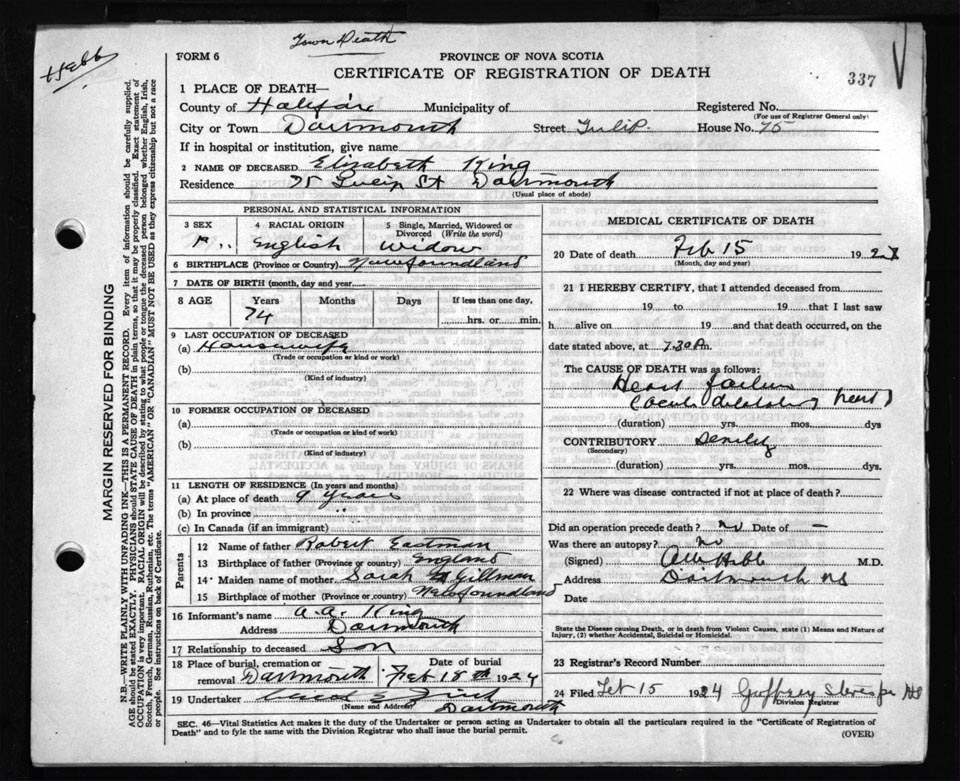 Hebb
Town Death
FORM 6
PROVINCE OF NOVA SCOTIA
CERTIFICATE OF REGISTRATION OF DEATH
337
1 PLACE OF DEATH—
County of Halifax Municipality of Registered No.
(For use of Registrar General only)
City or Town Dartmouth Street Tulip. House No. 75
If in hospital or institution, give name
2 NAME OF DECEASED Elizabeth King
Residence 75 Tulip St Dartmouth
(Usual place of abode)
PERSONAL AND STATISTICAL INFORMATION
3 SEX 4 RACIAL ORIGIN 5 Single, Married, Widowed or Divorced (Write the word)
F English Widow
6 BIRTHPLACE (Province or Country) Newfoundland
7 DATE OF BIRTH (month, day and year)
8 AGE Years Months Days If less than one day,
74 hrs. or min.
9 LAST OCCUPATION OF DECEASED
(a) Housewife
(Trade or occupation or kind or work)
(b)
(Kind of industry)
10 FORMER OCCUPATION OF DECEASED
(a)
(Trade or occupation or kind of work)
(b)
(Kind of industry)
11 LENGTH OF RESIDENCE (In years and months)
(a) At place of death 9 years
(b) In province "
(c) In Canada (if an immigrant)
Parents
12 Name of father Robert Eastman
13 Birthplace of father (Province or Country) England
14 Maiden name of mother Sarah Gillman
15 Birthplace of mother (Province or country) Newfoundland
16 Informant's name A.A. King
Address Dartmouth
17 Relationship to deceased Son
18 Place of burial, cremation or removal Dartmouth Date of burial Feb 18th 1924
19 Undertaker
(Name and Address) Dartmouth
MEDICAL CERTIFICATE OF DEATH
20 Date of death Feb 15 192
(Month, day and year)
21 I HEREBY CERTIFY, that I attended deceased from
19 to 19 that I last saw
h alive on 19 and that death occurred, on the
date stated above, at 7.30 Pm.
The CAUSE OF DEATH was as follows:
Heart failure
(acute dilatation heart)
(duration) yrs. mos. dys
CONTRIBUTORY Senility
(Secondary)
(duration) yrs. mos. dys.
22 Where was disease contracted if not at place of death?
Did an operation precede death? no Date of —
Was there an autopsy? no
(Signed) Hebb M.D.
Address Dartmouth NS
Date
State the Disease causing Death, or in death from Violent Causes, state (1) Means and Nature of
Injury, (2) whether Accidental, Suicidal or Homicidal.
23 Registrar's Record Number
24 Filed Feb 15 1924 Geoffrey
Division Registrar
SEC. 46—Vital Statistics Act makes it the duty of the Undertaker or person acting as Undertaker to obtain all the particulars required in the "Certificate of Registration of
Death" and to fyle the same with the Division Registrar who shall issue the burial permit.
(OVER)
MARGIN RESERVED FOR BINDING
N.B.—WRITE PLAINLY WITH UNFADING INK—THIS IS A PERMANENT RECORD. Every item of information should be carefully supplied.
AGE should be stated EXACTLY. PHYSICIANS should STATE CAUSE OF DEATH in plain terms, so that it may be properly classified. Exact statement of
OCCUPATION is very important. RACIAL ORIGIN will be described by stating to what people or tongue the deceased person belonged whether English, Irish,
Scotch, French, German, Russian, Ruthenian, etc. The terms "AMERICAN" OR "CANADIAN" MUST NOT BE USED as they express citizenship but not a race
or people. See instructions on back of Certificate.